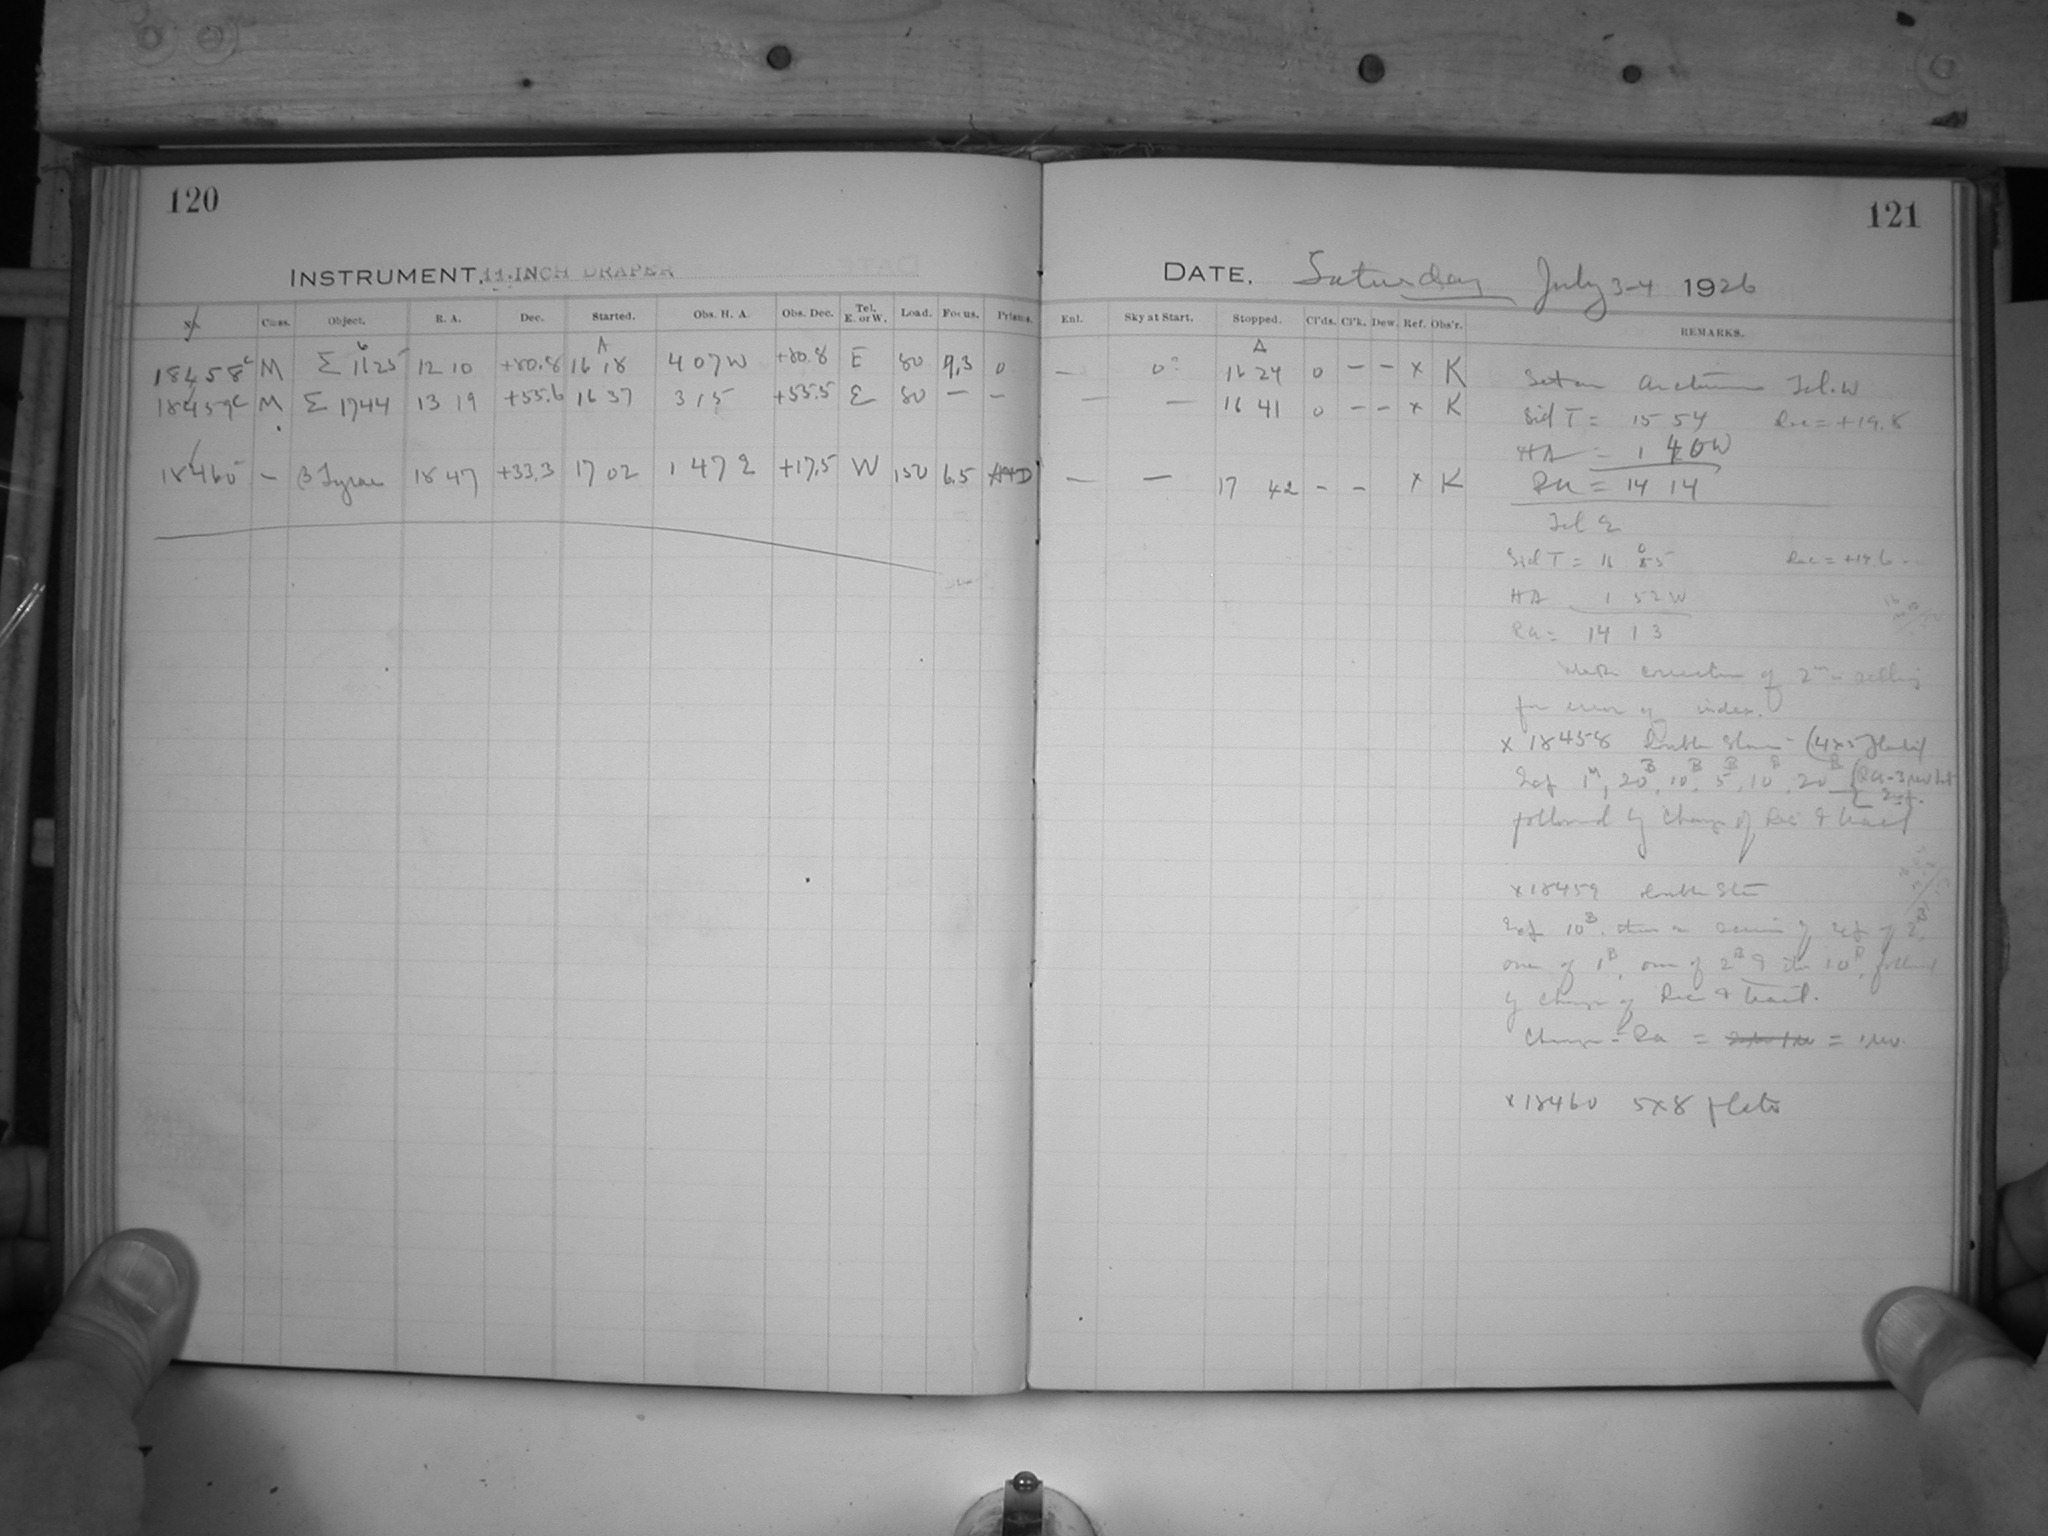 120
INSTRUMENT, 11-INCH DRAPER
X Class. Object. R. A. Dec. Started. Obs. H. A. Obs. Dec. Tel. E. or W. Load. Focus. Prisms.
18458c M Σ 1625 12 10 +80.8 A 16 18 4 07 W +80.8 E 80 9.3 0
18459c M Σ 1744 13 19 +55.6 16 37 3 15 +55.5 E 80 — —
18460 — β Lyrae 18 47 +33.3 17 02 1 47 E +17.5 W 150 6.5
121
DATE, Saturday July 3-4 1926
Enl. Sky at Start. Stopped. Cl'ds. Cl'k. Dew. Ref. Obs'r. REMARKS.
— 0 A 16 24 0 — — x K
— — 16 41 0 — — x K
— — 17 42 - - x K
Set on Arcturus Tel. W
Sid T = 15 54 Dec = +19.8
HA = 1 40 W
RA = 14 14
Tel E
Sid T = 16 05 Dec = +19.6
HA 1 52 W
Ra = 14 13
correction of 2m in setting
for error of index.
x 18458 Double Star (4x5 plate)
Exp 1m, 20B, 10B, 5B, 10B, 20B
followed by change of Dec & trail
x 18459 Double Star
Exp 10B, then a series of exp of 2B,
one of 1B, one of 2B & then 10B, followed
by change of Dec & trail.
Change = Ra = = 1 rev.
x 18460 5x8 plate